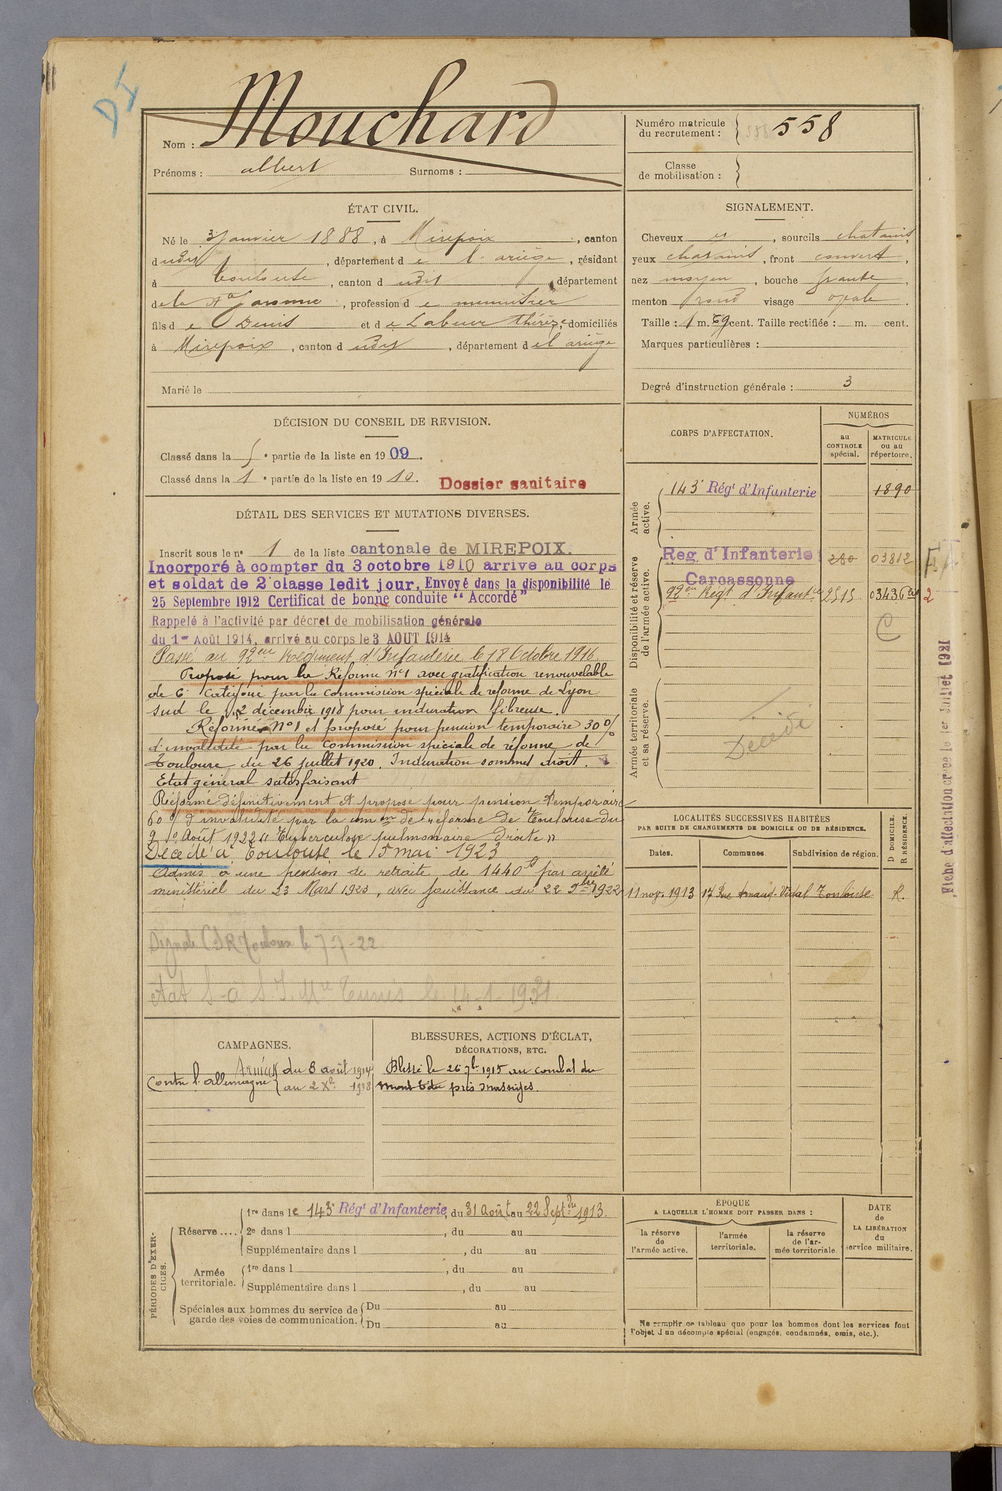 DI
Nom : Mouchard
Prénoms : albert Surnoms :
Numéro matricule du recrutement : 558
Classe de mobilisation :
ÉTAT CIVIL.
Né le 3 Janvier 1888, à Mirepoix, canton
dudit, département de l'ariège, résidant
à Toulouse, canton dudit, département
de la Hte Garonne, profession de menuisier
fils de Denis et de Labeur thérèse, domiciliés
à Mirepoix, canton dudit, département de l'ariège
Marié le
SIGNALEMENT.
Cheveux et, sourcils chatains
yeux chatains, front couvert,
nez moyen, bouche grande,
menton rond visage ovale.
Taille : 1 m. 59 cent. Taille rectifiée : m. cent.
Marques particulières :
Degré d'instruction générale : 3
DÉCISION DU CONSEIL DE REVISION.
Classé dans la 5e partie de la liste en 1909.
Classé dans la 1e partie de la liste en 1910.
Dossier sanitaire
DÉTAIL DES SERVICES ET MUTATIONS DIVERSES.
Inscrit sous le n° 1 de la liste cantonale de MIREPOIX.
Incorporé à compter du 3 octobre 1910 arrivé au corps
et soldat de 2e classe ledit jour. Envoyé dans la disponibilité le
25 Septembre 1912 Certificat de bonne conduite "Accordé"
Rappelé à l'activité par décret de mobilisation générale
du 1er Août 1914, arrivé au corps le 3 AOUT 1914
Passé au 92eme Régiment d'Infanterie le 18 Octobre 1916
Proposé pour la Réforme n°1 avec gratification renouvelable
de 6e Catégorie par la Commission spéciale de réforme de Lyon
sud le 2 décembre 1918 pour induration fibreuse.
Réformé N°1 et proposé pour pension temporaire 30 %
d'invalidité par la Commission spéciale de réforme de
Toulouse du 26 juillet 1920. Induration sommet droit.
Etat général satisfaisant
Réformé définitivement et proposé pour pension temporaire
60 % d'invalidité par la com.on de réforme de Toulouse du
Août 1922 "Tuberculose pulmonaire droite"
Décédé à Toulouse le 15 mai 1923
Admis à une pension de retraite de 1440 f par arrêté
ministériel du 23 Mars 1923, avec jouissance du 22 1922
CORPS D'AFFECTATION.
NUMÉROS
au CONTROLE spécial.
MATRICULE ou au répertoire.
Armée active.
143e Régt d'Infanterie 1890
Disponibilité et réserve de l'armée active.
Reg d'Infanterie 280 03812
Carcassonne
92eme Régt d'Infanterie 2515 03436
C
Armée territoriale et sa réserve.
Décédé
Fiche d'affectation créée le 1er Juillet 1921
LOCALITÉS SUCCESSIVES HABITÉES
PAR SUITE DE CHANGEMENTS DE DOMICILE OU DE RÉSIDENCE.
Dates. Communes. Subdivision de région. D DOMICILE. R RÉSIDENCE.
11 nov. 1913 17 Rue Arnaud-Vidal Toulouse R.
CAMPAGNES.
Contre l'allemagne { Armées du 3 août 1914
au 2 Xbre 1918
BLESSURES, ACTIONS D'ÉCLAT,
DÉCORATIONS, ETC.
Blessé le 26 7bre 1915 au combat du
mont Têtu près massiges.
PÉRIODES D'EXERCICES.
Réserve .... 1re dans le 143e Régt d'Infanterie, du 31 Août au 22 Septbre 1913.
2e dans l , du au
Supplémentaire dans l , du au
Armée territoriale. 1re dans l , du au
Supplémentaire dans l , du au
Spéciales aux hommes du service de garde des voies de communication. Du au
Du au
EPOQUE
A LAQUELLE L'HOMME DOIT PASSER DANS :
la réserve de l'armée active.
l'armée territoriale.
la réserve de l'armée territoriale.
DATE de LA LIBÉRATION du service militaire.
Ne remplir ce tableau que pour les hommes dont les services font
l'objet d'un décompte spécial (engagés, condamnés, omis, etc.).